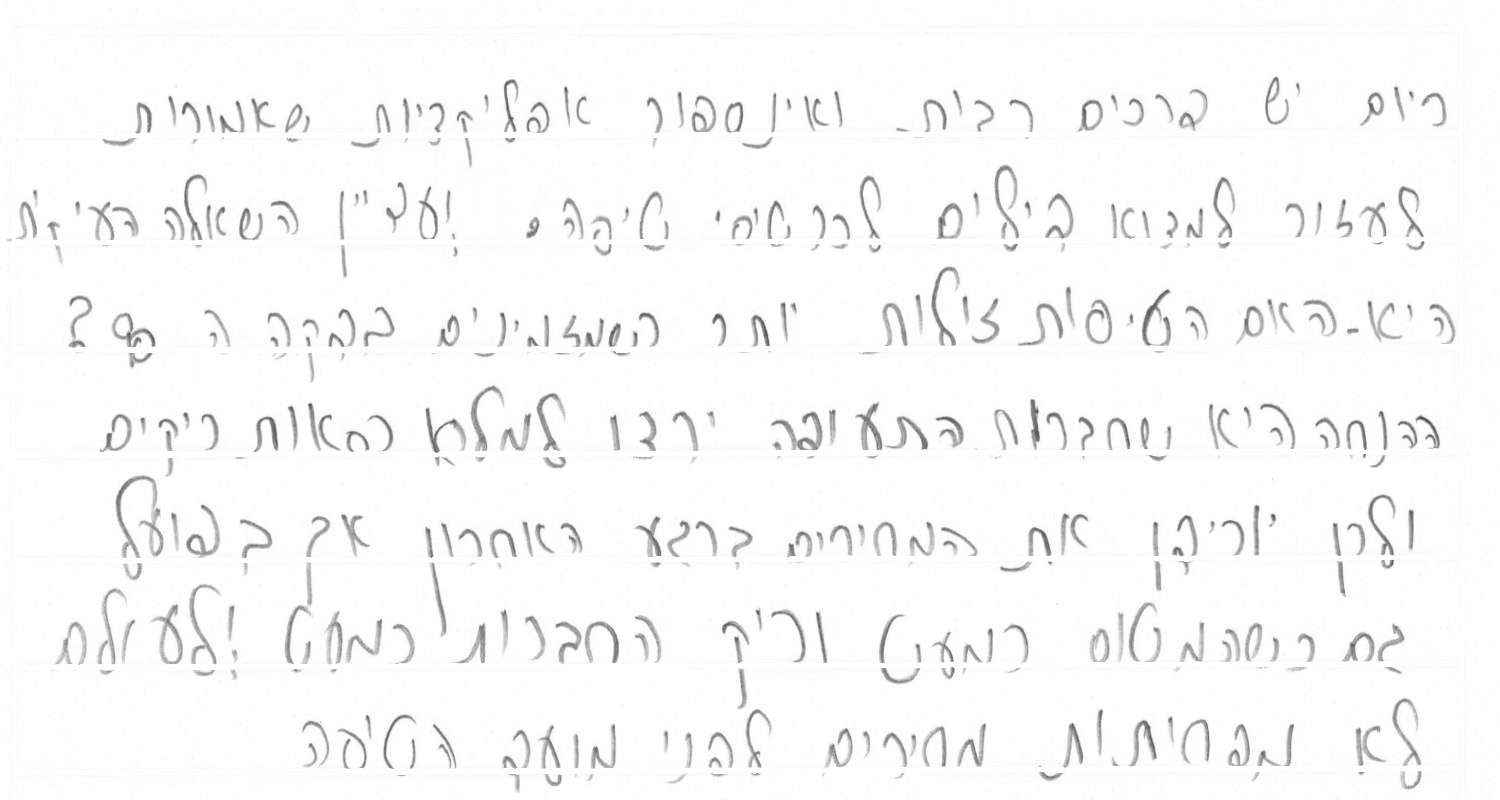 כיום יש דרכים רבות ואינספור אפליקציות שאמורות
לעזור למצוא דילים לכרטיסי טיסה. ועדיין השאלה העיקרית
היא-האם הטיסות זולות יותר כשמזמינים בדקה ה 90?
ההנחה היא שחברות התעופה ירצו למלא כסאות ריקים
ולכן יורידו את המחירים ברגע האחרון אך בפועל
גם כשהמטוס כמעט וריק החברות כמעט ולעולם
לא מפחיתות מחירים לפני מועד הטיסה